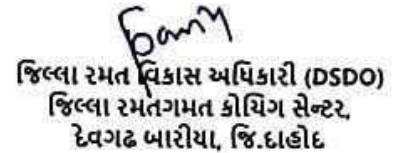 જિલ્લા રમત વિકાસ અધિકારી (DSDO)
જિલ્લા રમતગમત કોચિગ સેન્ટર,
દેવગઢ બારીયા, જિ.દાહોદ